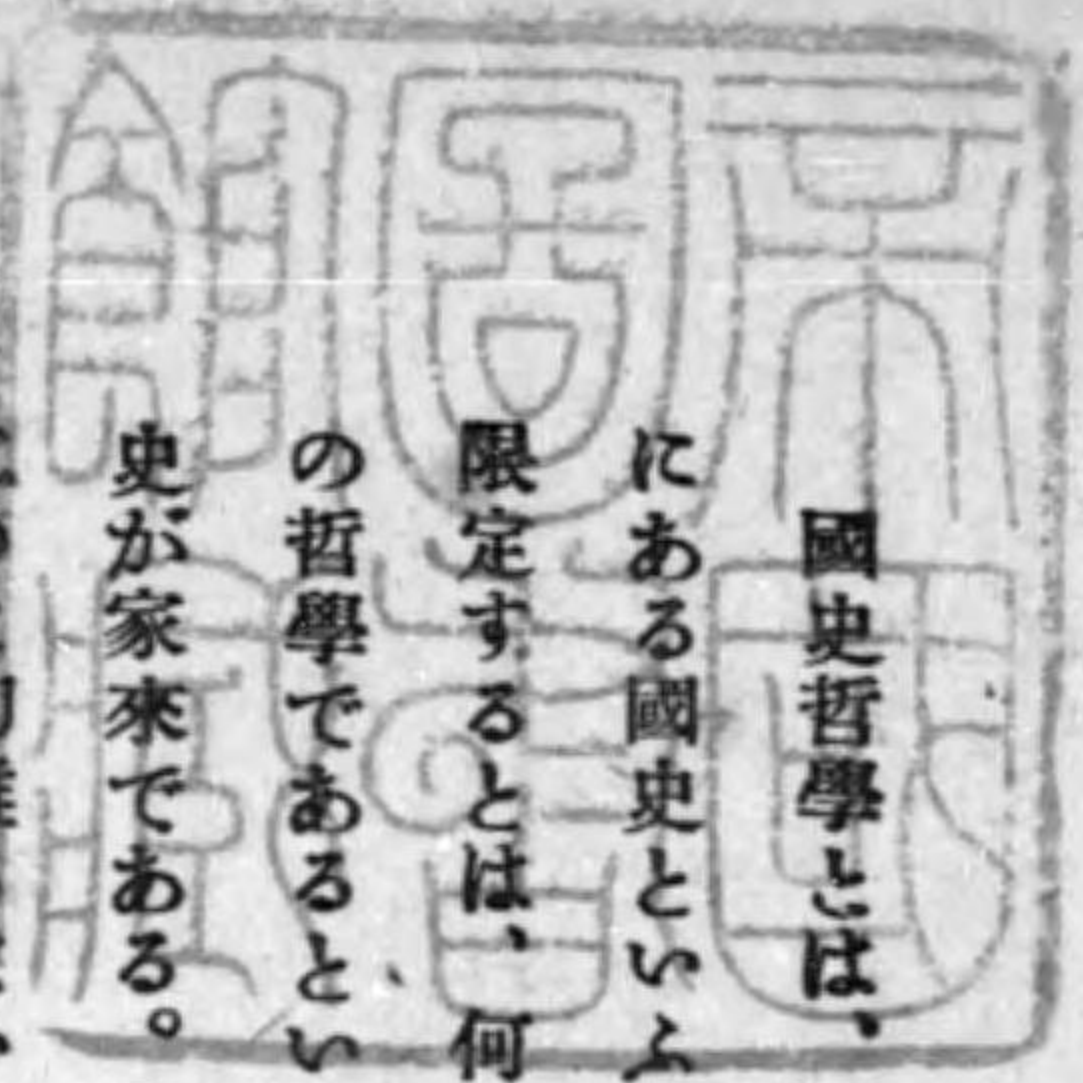 國史哲學とは、
にある國史といふ
限定するとは、何
の哲學であるとい
史が家來である。